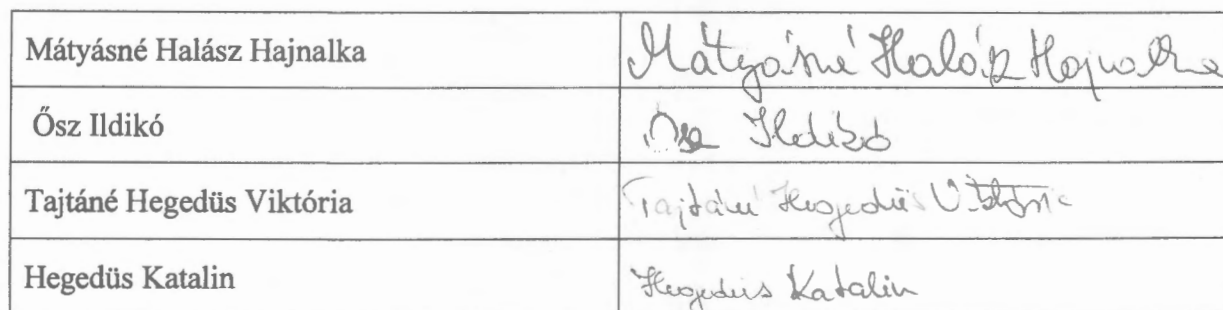 Mátyásné Halász Hajnalka Mátyásné Halász Hajnalka
Ősz Ildikó Ősz Ildikó
Tajtáné Hegedüs Viktória Tajtáné Hegedüs Viktória
Hegedüs Katalin Hegedüs Katalin